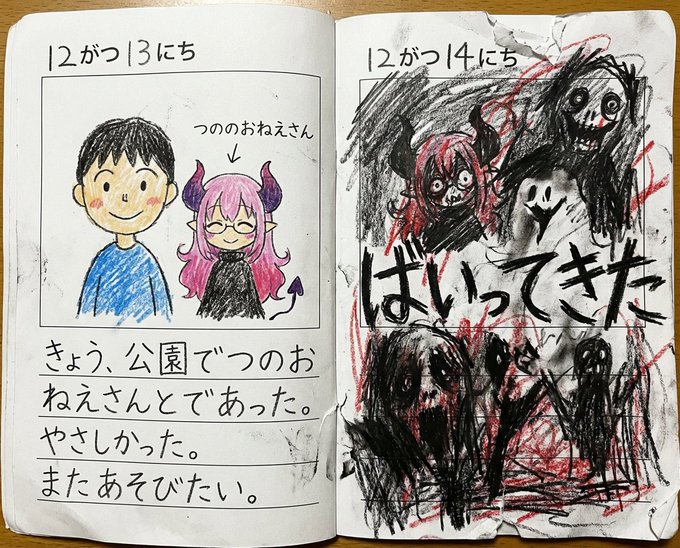 12がつ13にち
つののおねえさん
きょう、公園でつのお
ねえさんとであった。
やさしかった。
またあそびたい。
12がつ14にち
ばいってきた